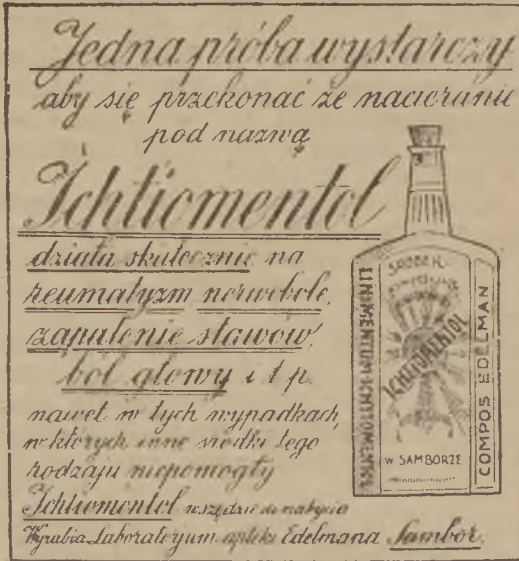 Jedna próba wystarczy
aby się przekonać że nacieranie
pod nazwą
Ichtiomentol
działa skutecznie na
reumatyzm nerwobole,
zapalenie stawów,
ból głowy i t p.
nawet w tych wypadkach,
w których inne środki tego
rodzaju niepomogły
Ichtiomentol wszędzie do nabycia
Wyrabia Laboratoryum apteki Edelmana Sambor.
LINIMENTUM
ICHTIOMENTOL
W SAMBORZE
COMPOS EDELMAN